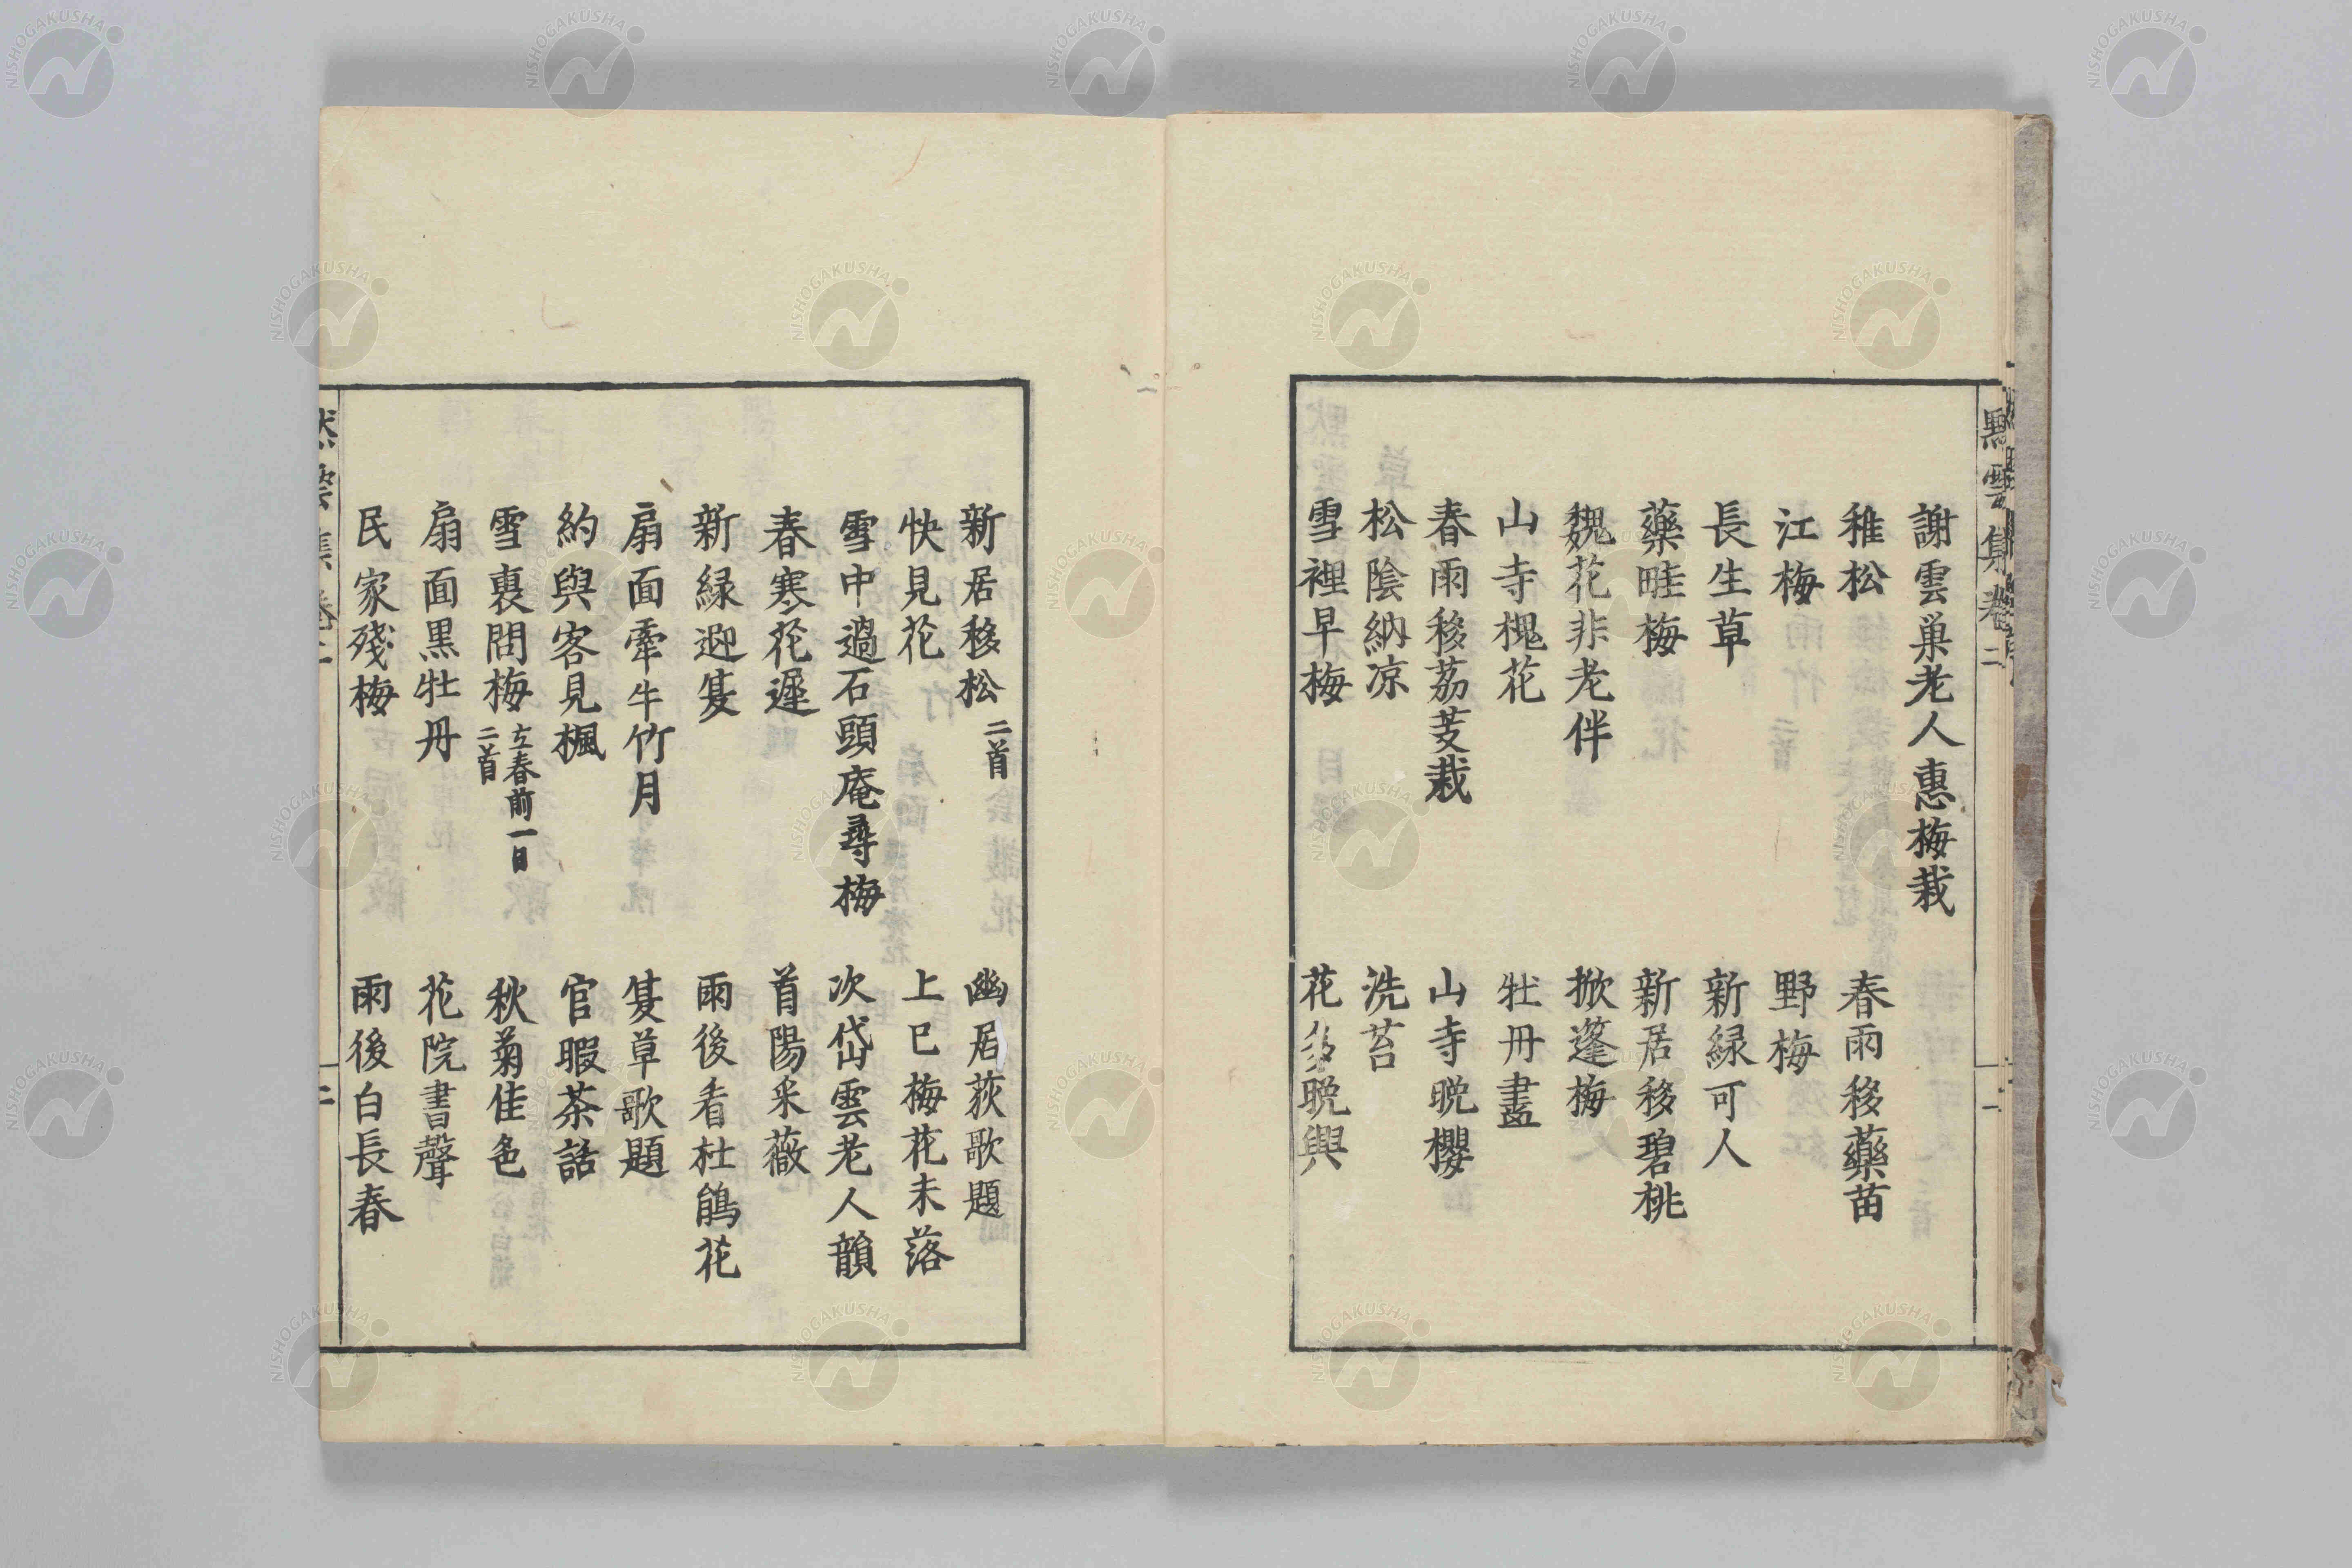 默雲集卷二
一
謝雲巢老人惠梅栽
稚松　春雨移藥苗
江梅　野梅
長生草　新緑可人
藥畦梅　新居移碧桃
魏花非老伴　掀蓬梅
山寺槐花　牡丹畫
春雨移茘芰栽　山寺晩櫻
松陰納凉　洗苔
雪裡早梅　花多晩興
新居移松二首　幽居荻歌題
快見花　上巳梅花未落
雪中過石頭庵尋梅　次岱雲老人韻
春寒花遲　首陽采薇
新緑迎夏　雨後看杜鵑花
扇面牽牛竹月　夏草歌題
約與客見楓　官暇茶話
雪裏問梅立春前一日二首　秋菊佳色
扇面黒牡丹　花院書聲
民家殘梅　雨後白長春
二
NISHOGAKUSHA